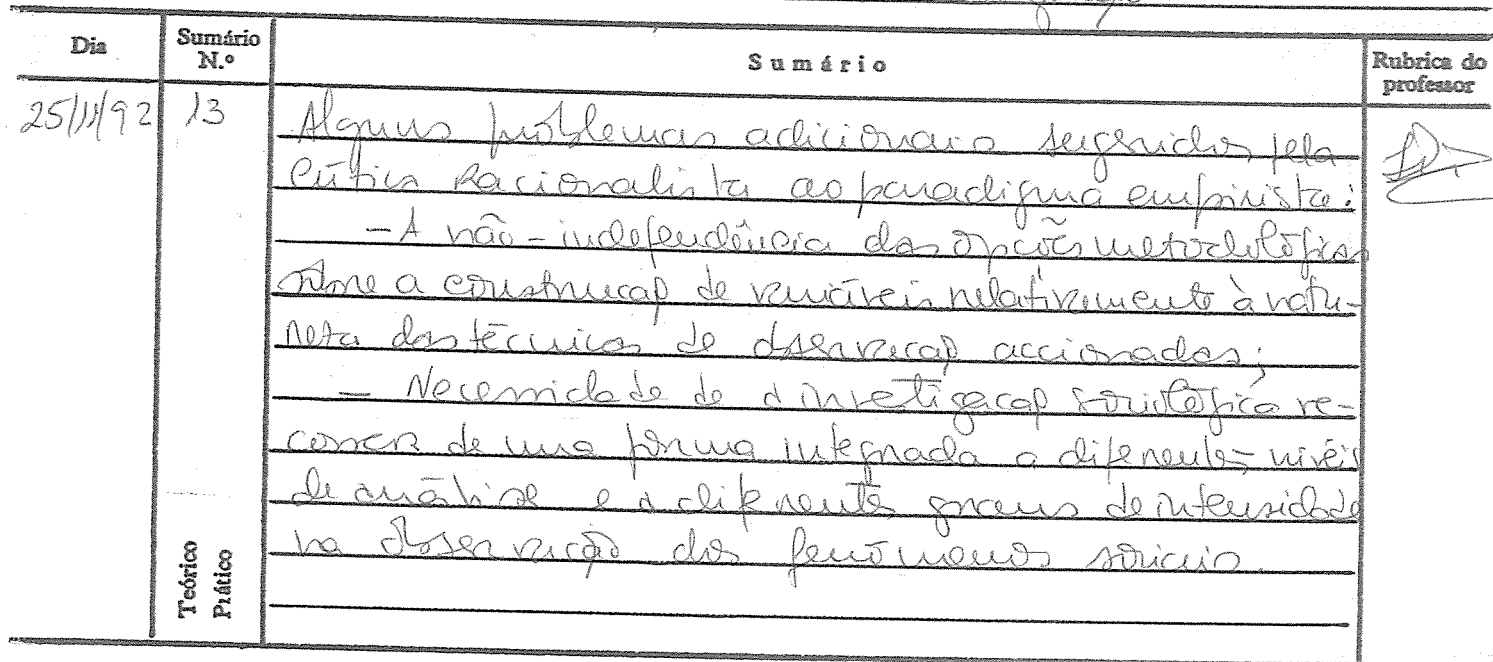 Dia
Sumário N.º
Sumário
Rubrica do professor
25/11/92
13
Alguns problemas adicionais sugeridos pela
crítica racionalista ao paradigma empirista:
- A não-independência das opções metodológicas
sobre a construção de variáveis relativamente à natu-
reza das técnicas de observação accionadas;
- Necessidade de a investigação sociológica re-
correr de uma forma integrada a diferentes níveis
de análise e a diferentes graus de intensidade
na observação dos fenómenos sociais.
Teórico
Prático